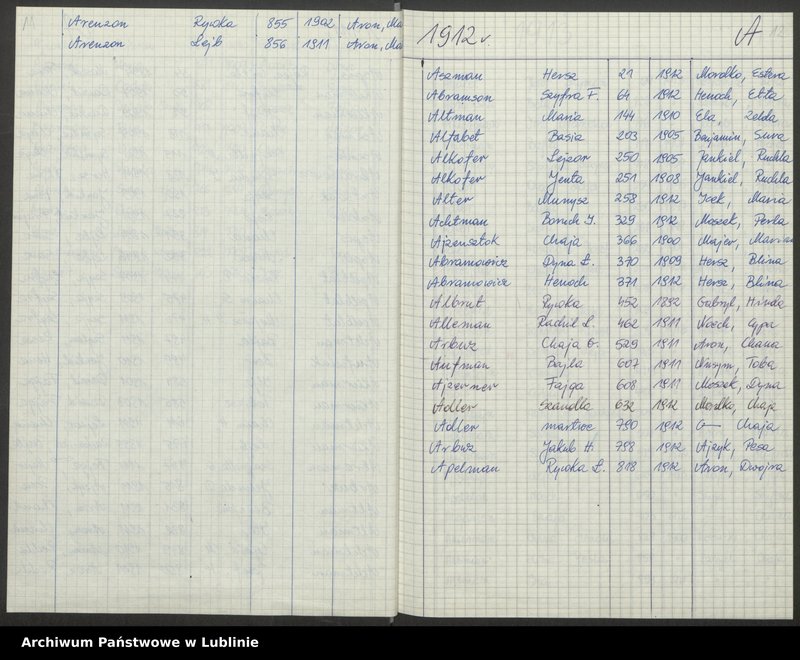 Arenzon Rywka 855 1902 Aron, Ma
Arenzon Lejb 856 1911 Aron, Ma
1912 r A
Aszman Hersz 21 1912 Mordko, Estera
Abramson Szyfra F. 64 1912 Henoch, Etta
Altman Maria 144 1910 Ela, Zelda
Alfabet Basia 203 1905 Benjamin, Sura
Alkofer Lejzor 250 1905 Jankiel, Ruchla
Alkofer Jenta 251 1908 Jankiel, Ruchla
Alter Munysz 258 1912 Icek, Maria
Achtman Boruch J. 329 1912 Moszek, Perla
Ajzensztok Chaja 366 1900 Majer, Mariem
Abramowicz Dyna Ł. 370 1909 Hersz, Blima
Abramowicz Henoch 371 1912 Hersz, Blima
Albrut Rywka 452 1892 Gabryl, Hinda
Alleman Rachil L. 462 1911 Noech, Cypa
Arbuz Chaja G. 529 1911 Aron, Chawa
Aufman Bajla 607 1911 Nusym, Toba
Ajzerner Fajga 608 1911 Moszek, Dyna
Adler Szandla 632 1912 Moszko, Chaja
Adler martwe 790 1912 Chaja
Arbuz Jakub H. 798 1912 Ajzyk, Pesa
Apelman Rywka L. 818 1912 Aron, Dwojra
Archiwum Państwowe w Lublinie